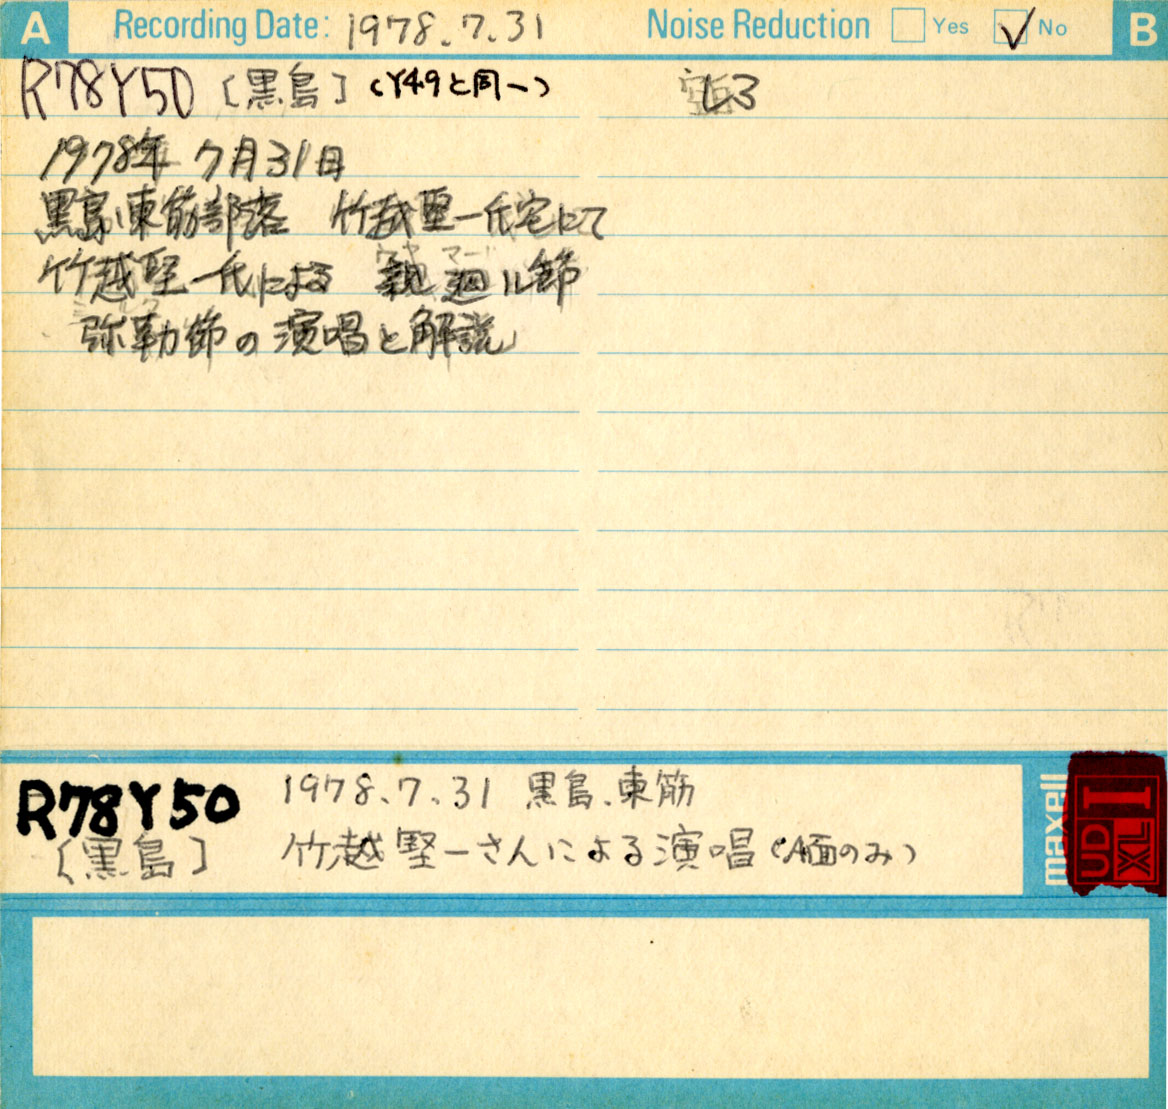 A Recording Date: 1978.7.31 Noise Reduction Yes No B
R78Y50 〔黒島〕 (Y49と同一)
1978年 7月31日
黒島、東筋部落 竹越堅一氏宅にて
竹越堅一氏による 親廻ル節
弥勒節の演唱と解説
R78Y50
〔黒島〕
1978.7.31 黒島、東筋
竹越堅一さんによる演唱(A面のみ)
maxell
UD
XL I